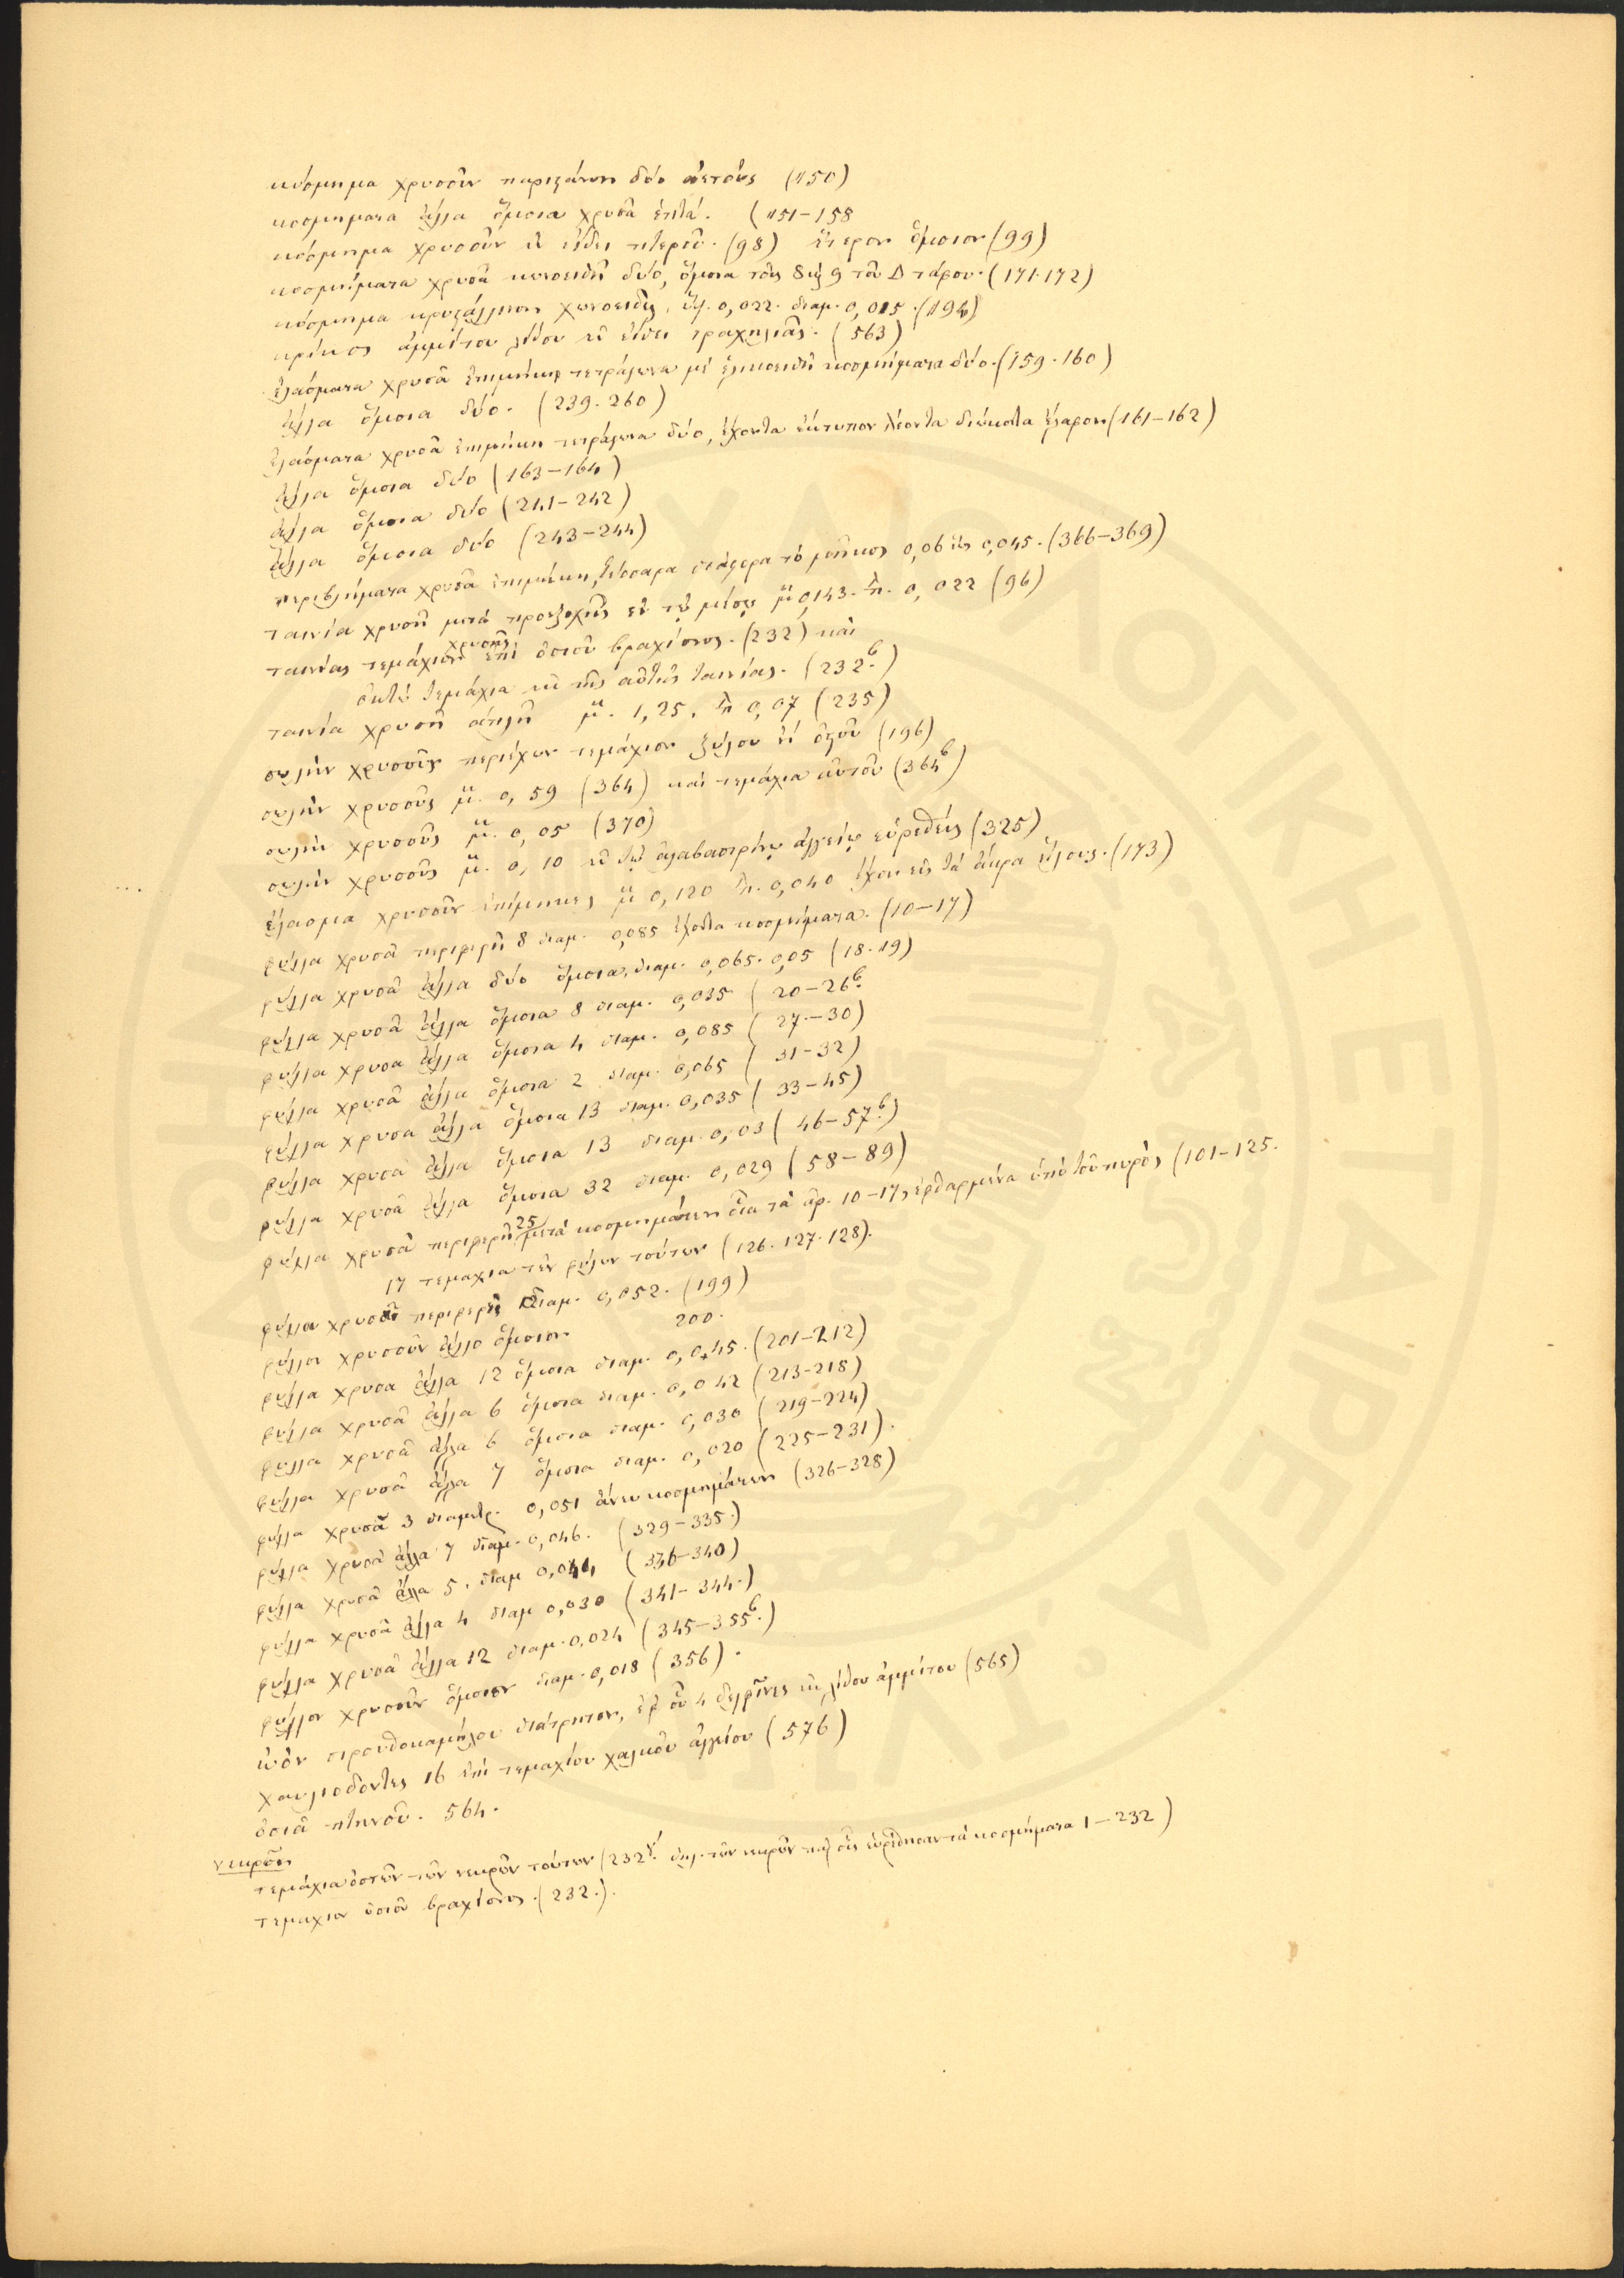 κόσμημα χρυσοῦν παριστάνον δύο ἀετούς (150)
κοσμηματα ἄλλα ὅμοια χρυσᾶ ἑπτά. (151-158
κόσμημα χρυσοῦν ἐν εἴδει πτεροῦ. (98) ἕτερον ὅμοιον (99)
κοσμήματα χρυσᾶ κωνοειδῆ δύο, ὅμοια τοῖς 8 καὶ 9 τοῦ Δ τάφου. (171.172)
κόσμημα κρυστάλλινον χωνοειδὲς, ὕψ. 0,022. διαμ. 0,015. (194)
κρίκος ἀμμίτου λίθου ἐν εἴδει τραχηλιᾶς. (563)
ἐλάσματα χρυσᾶ ἐπιμήκη τετράγωνα μὲ ἑλικοειδῆ κοσμήματα δύο. (159.160)
ἄλλα ὅμοια δύο. (239.260)
ἐλάσματα χρυσᾶ ἐπιμήκη τετράγωνα δύο, ἔχοντα ἔκτυπον λέοντα διώκοντα ἔλαφον (161-162)
ἄλλα ὅμοια δύο (163-164)
ἄλλα ὅμοια δύο (241-242)
ἄλλα ὅμοια δύο (243-244)
περιβλήματα χρυσᾶ ἐπιμήκη, τέσσαρα διάφορα τὸ μῆκος 0,06 ἕως 0,045. (366-369)
ταινία χρυσῆ μετὰ προεξοχῆς ἐν τῷ μέσῳ μ. 0,143. π. 0,022 (96)
ταινίας τεμάχιον χρυσῆς ἐπὶ ὀστοῦ βραχίονος. (232) καὶ
ὀκτὼ τεμάχια ἐκ τῆς αὐτῆς ταινίας. (232β.)
ταινία χρυσῆ ἁπλῆ μ. 1,25, π 0,07 (235)
σωλὴν χρυσοῦς περιέχων τεμάχιον ξύλου ἢ ὀστοῦ (196)
σωλὴν χρυσοῦς μ. 0,59 (364) καὶ τεμάχια αὐτοῦ (364β)
σωλὴν χρυσοῦς μ. 0,05 (370)
σωλὴν χρυσοῦς μ. 0,10 ἐν τῷ ἀλαβαστρίνῳ ἀγγείῳ εὑρεθείς (325)
ἔλασμα χρυσοῦν ἐπίμηκες μ 0,120 π. 0,040 ἔχον εἰς τὰ ἄκρα ἥλους. (173)
φύλλα χρυσᾶ περιφερῆ 8 διαμ. 0,085 ἔχοντα κοσμήματα. (10-17)
φύλλα χρυσᾶ ἄλλα δύο ὅμοια, διαμ. 0,065. 0,05 (18.19)
φύλλα χρυσᾶ ἄλλα ὅμοια 8 διαμ. 0,035 (20-26β.
φύλλα χρυσα ἄλλα ὅμοια 4 διαμ. 0,085 (27.-30)
φύλλα χρυσᾶ ἄλλα ὅμοια 2 διαμ. 0,065 (31-32)
φύλλα χρυσα ἄλλα ὅμοια 13 διαμ. 0,035 (33-45)
φύλλα χρυσᾶ ἄλλα ὅμοια 13 διαμ. 0,03 (46-57β.)
φύλλα χρυσᾶ ἄλλα ὅμοια 32 διαμ. 0,029 (58-89)
φύλλα χρυσᾶ περιφερῆ 25 μετὰ κοσμημάτων οἷα τὰ ἀρ. 10-17, ἐφθαρμένα ὑπὸ τοῦ πυρὸς (101-125.
17 τεμαχια τῶν φύλων τούτων (126.127.128).
φύλλον χρυσοῦν περιφερὲς διαμ. 0,052. (199)
φύλλον χρυσοῦν ἄλλο ὅμοιον 200.
φύλλα χρυσα ἄλλα 12 ὅμοια διαμ. 0,045. (201-212)
φύλλα χρυσᾶ ἄλλα 6 ὅμοια διαμ. 0,042 (213-218)
φύλλα χρυσᾶ ἄλλα 6 ὅμοια διαμ. 0,030 (219-224)
φύλλα χρυσᾶ ἄλλα 7 ὅμοια διαμ. 0,020 (225-231).
φύλλα χρυσᾶ 3 διαμετρ. 0,051 ἄνευ κοσμημάτων (326-328)
φύλλα χρυσᾶ ἄλλα 7 διαμ. 0,046. (329-335.)
φύλλα χρυσᾶ ἄλλα 5. διαμ 0,044 (336-340)
φύλλα χρυσᾶ ἄλλα 4 διαμ 0,030 (341-344.)
φύλλα χρυσᾶ ἄλλα 12 διαμ. 0,024 (345-355β.)
φύλλον χρυσοῦν ὅμοιον διαμ. 0,018 (356).
ὠὸν στρουθοκαμήλου διάτρητον, ἐφ' οὗ 4 δελφῖνες ἐκ λίθου ἀμμίτου (565)
χαυλιοδόντες 16 ἐπὶ τεμαχίου χαλκοῦ ἀγγείου (576)
ὀστᾶ πτηνοῦ. 564.
νεκροῦ
τεμάχια ὀστῶν τῶν νεκρῶν τούτων (232γ. δηλ. τῶν νεκρῶν παρ' οἷς εὑρέθησαν τὰ κοσμήματα 1-232)
τεμαχιον ὀστοῦ βραχίονος. (232.).